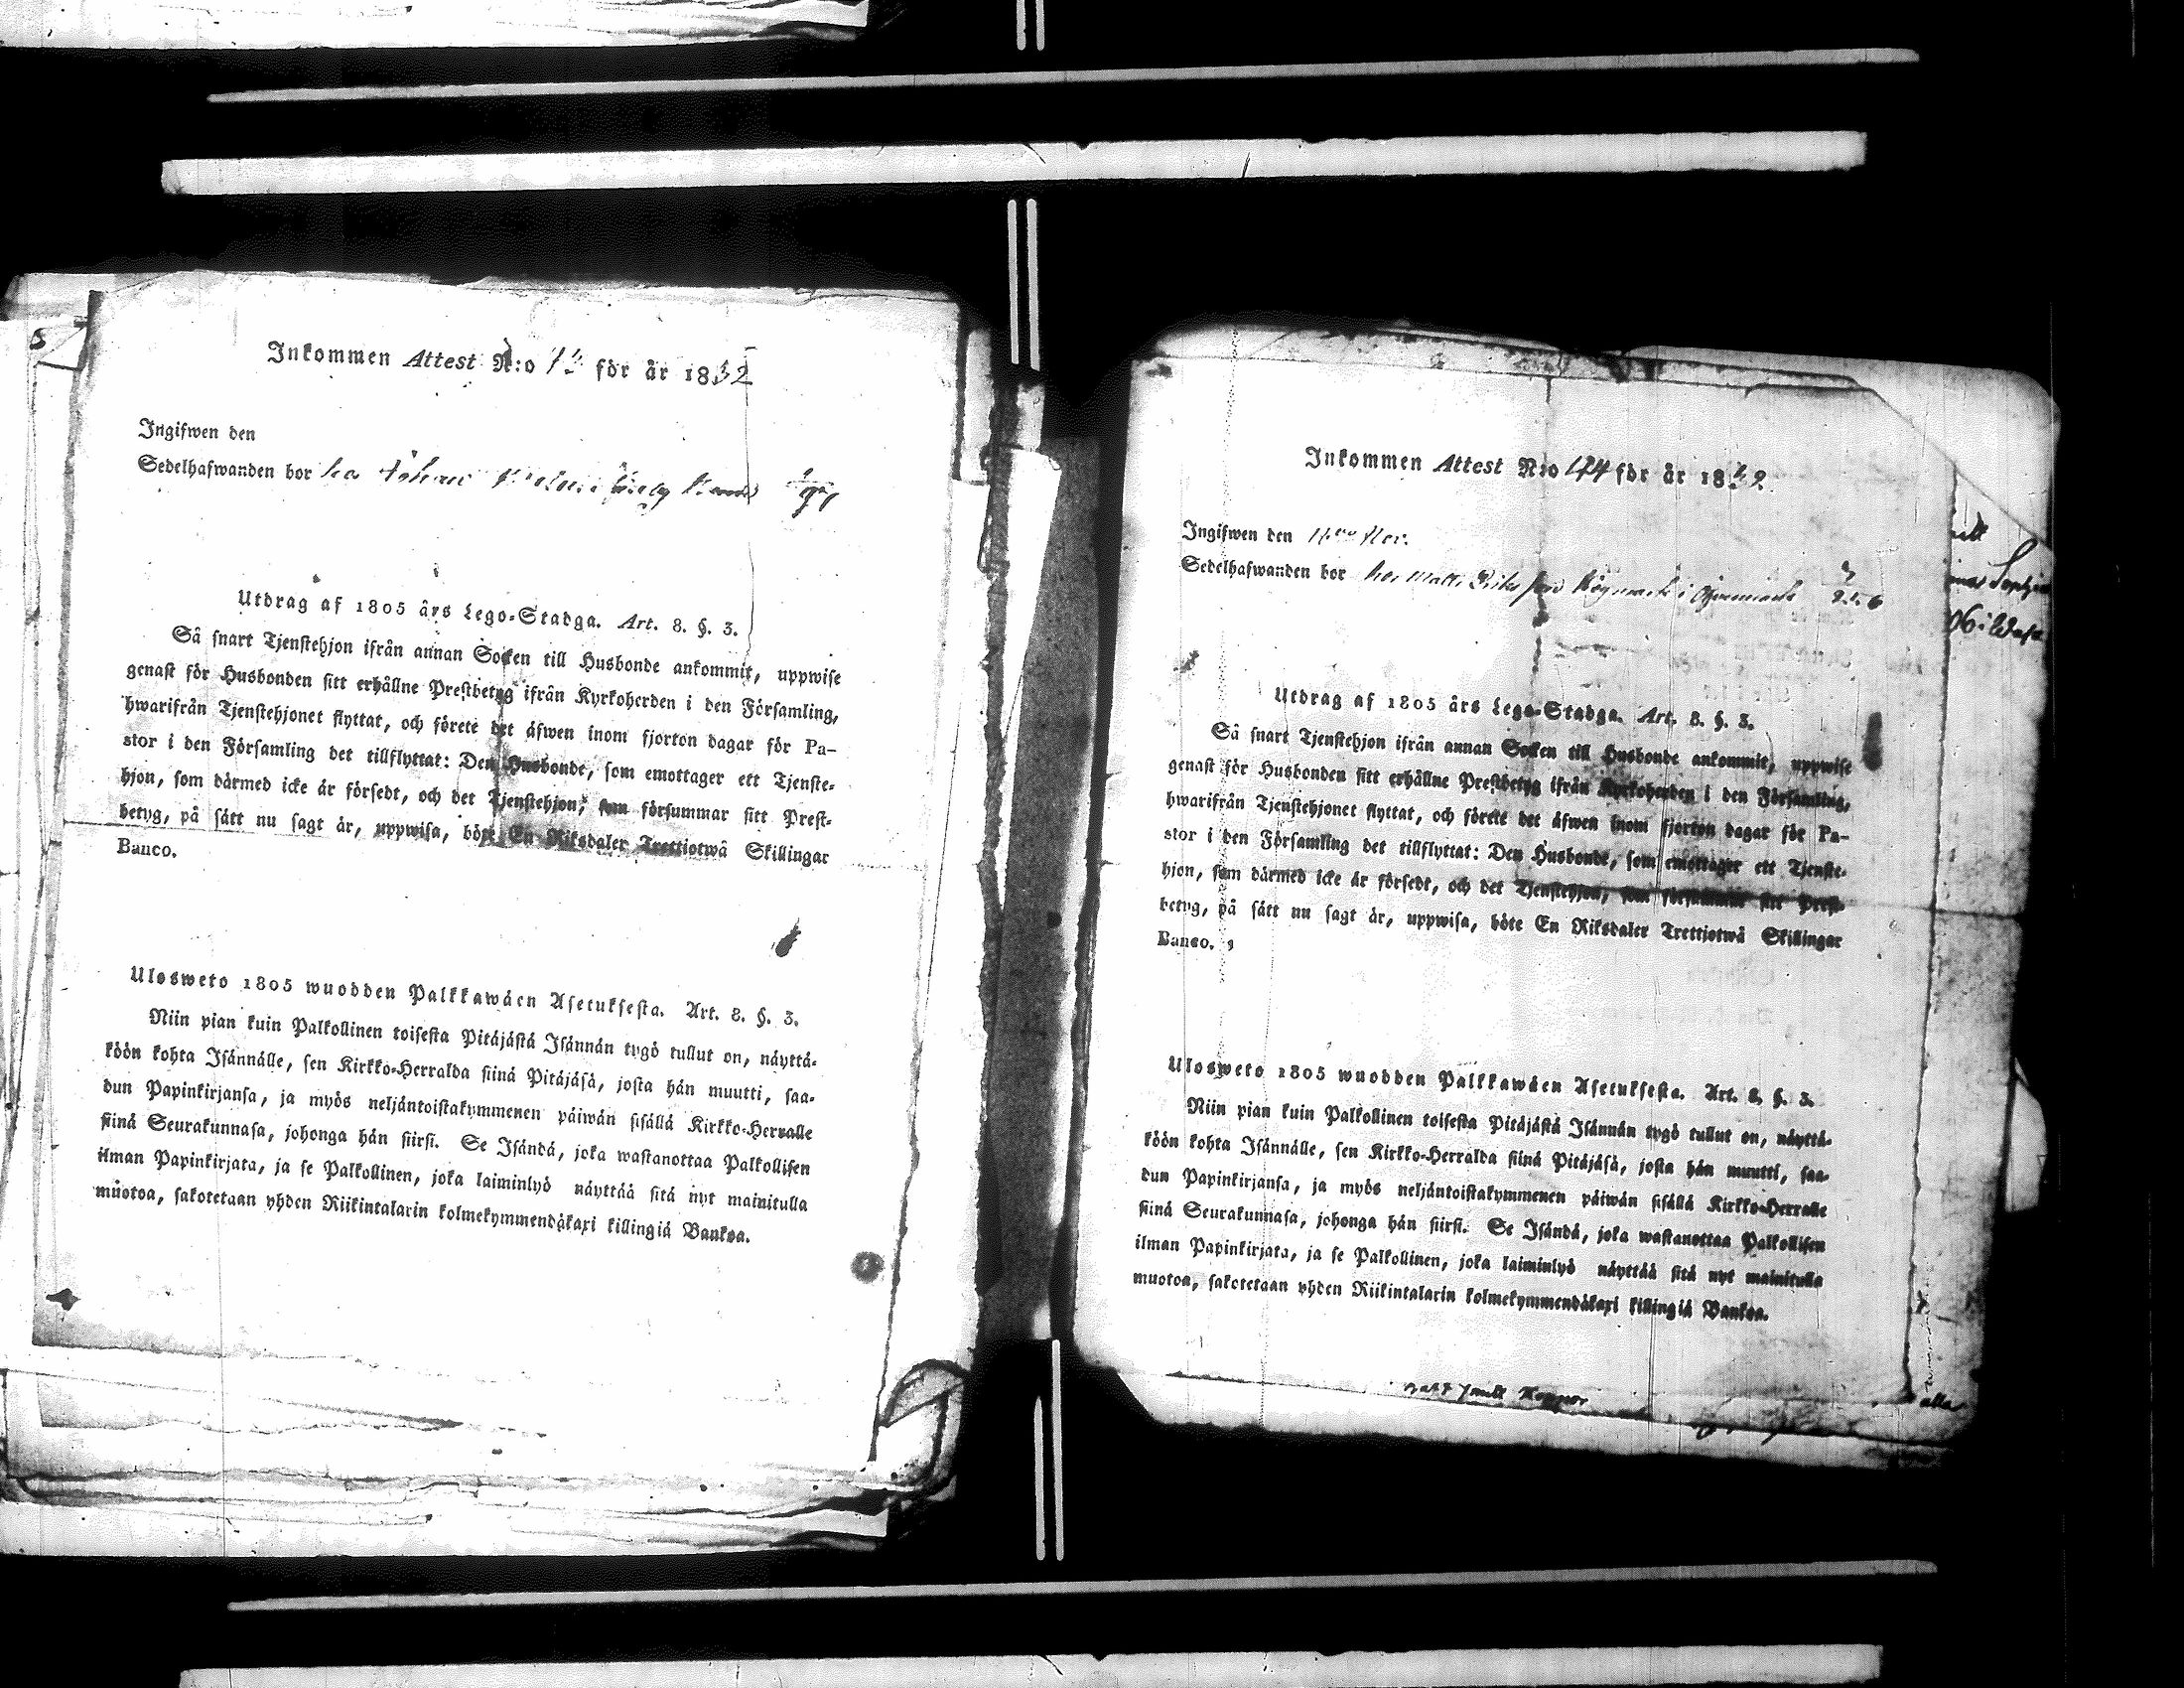 Inkommen Attest N:o för år 1832
Ingifwen den
Sedelhafwanden bor hos Johan
Utdrag af 1805 års Lego-Stadga. Art. 8. §. 3.
Så snart Tjenstehjon ifrån annan Socken till Husbonde ankommit, uppwise
genast för Husbonden sitt erhållne Prestbetyg ifrån Kyrkoherden i den Församling,
hwarifrån Tjenstehjonet flyttat, och förete det äfwen inom fjorton dagar för Pa-
stor i den Församling det tillflyttat: Den Husbonde, som emottager ett Tjenste-
hjon, som därmed icke är försedt, och det Tjenstehjon, som försummar sitt Prest-
betyg, på sätt nu sagt är, uppwisa, böte En Riksdaler Trettiotwå Skillingar
Banco.
Ulosweto 1805 wuodden Palkkawäen Asetuksesta. Art. 8. §. 3.
Niin pian kuin Palkollinen toisesta Pitäjästä Isännän tygö tullut on, näyttä-
köön kohta Isännälle, sen Kirkko-Herralda siinä Pitäjäsä, josta hän muutti, saa-
dun Papinkirjansa, ja myös neljäntoistakymmenen päiwän sisällä Kirkko-Herralle
siinä Seurakunnasa, johonga hän siirsi. Se Isändä, joka wastanottaa Palkollisen
ilman Papinkirjata, ja se Palkollinen, joka laiminlyö näyttää sitä nyt mainitulla
muotoa, sakotetaan yhden Riikintalarin kolmekymmendäkaxi killingiä Bankoa.
Inkommen Attest N:o 144 för år 1832
Ingifwen den Nov.
Sedelhafwanden bor hos Matts i
Utdrag af 1805 års Lego-Stadga. Art. 8. §. 3.
Så snart Tjenstehjon ifrån annan Socken till Husbonde ankommit, uppwise
genast för Husbonden sitt erhållne Prestbetyg ifrån Kyrkoherden i den Församling,
hwarifrån Tjenstehjonet flyttat, och förete det äfwen inom fjorton dagar för Pa-
stor i den Församling det tillflyttat: Den Husbonde, som emottager ett Tjenste-
hjon, som därmed icke är försedt, och det Tjenstehjon, som försummar sitt Prest-
betyg, på sätt nu sagt är, uppwisa, böte En Riksdaler Trettiotwå Skillingar
Banco.
Ulosweto 1805 wuodden Palkkawäen Asetuksesta. Art. 8. §. 3.
Niin pian kuin Palkollinen toisesta Pitäjästä Isännän tygö tullut on, näyttä-
köön kohta Isännälle, sen Kirkko-Herralda siinä Pitäjäsä, josta hän muutti, saa-
dun Papinkirjansa, ja myös neljäntoistakymmenen päiwän sisällä Kirkko-Herralle
siinä Seurakunnasa, johonga hän siirsi. Se Isändä, joka wastanottaa Palkollisen
ilman Papinkirjata, ja se Palkollinen, joka laiminlyö näyttää sitä nyt mainitulla
muotoa, sakotetaan yhden Riikintalarin kolmekymmendäkaxi killingiä Bankoa.